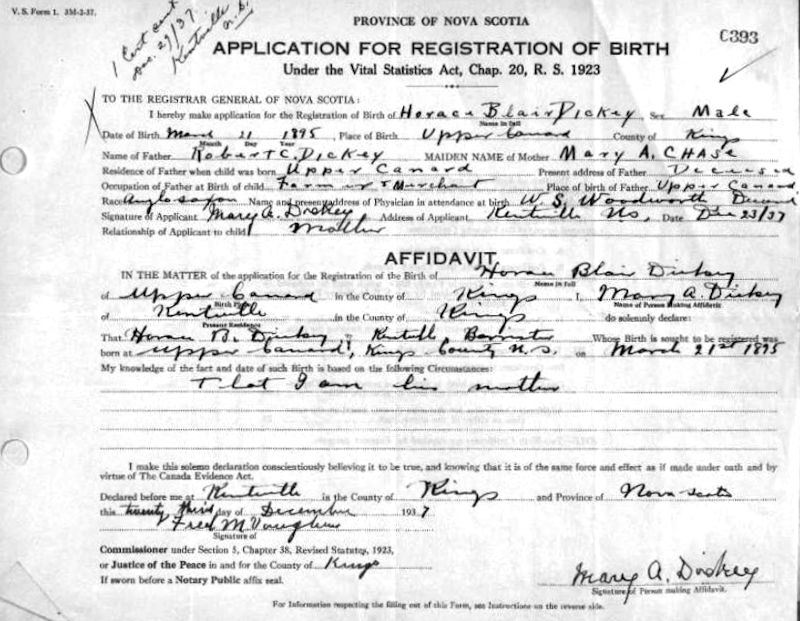 V. S. Form 1. 3M-3-37.
1 Cert sent
Dec. 27/37.
Kentville
N. S.
PROVINCE OF NOVA SCOTIA
C393
APPLICATION FOR REGISTRATION OF BIRTH
Under the Vital Statistics Act, Chap. 20, R. S. 1923
TO THE REGISTRAR GENERAL OF NOVA SCOTIA:
I hereby make application for the Registration of Birth of Horace Blair Dickey, Sex Male
Name in full
Date of Birth March 21 1895, Place of Birth Upper Canard County of Kings
Month Day Year
Name of Father Robert C. Dickey MAIDEN NAME of Mother Mary A. CHASE
Residence of Father when child was born Upper Canard Present address of Father Deceased
Occupation of Father at Birth of child Farmer & Merchant Place of birth of Father Upper Canard
Race Anglosaxon Name and present address of Physician in attendance at birth W. S. Woodworth
Signature of Applicant Mary A. Dickey Address of Applicant Kentville NS. Date Dec 23/37
Relationship of Applicant to child Mother
AFFIDAVIT
IN THE MATTER of the application for the Registration of the Birth of Horace Blair Dickey
Name in full
of Upper Canard in the County of Kings I, Mary A. Dickey
Birth Place Name of Person making Affidavit
of Kentville in the County of Kings do solemnly declare:
Present Residence
That Horace B. Dickey, Kentville Barrister Whose Birth is sought to be registered was
born at Upper Canard, Kings County N. S. on March 21st 1895
My knowledge of the fact and date of such Birth is based on the following Circumstances:
That I am his mother
I make this solemn declaration conscientiously believing it to be true, and knowing that it is of the same force and effect as if made under oath and by
virtue of The Canada Evidence Act.
Declared before me at Kentville in the County of Kings and Province of Nova Scotia
this twenty third day of December 1937
Fred M
Signature of
Commissioner under Section 5, Chapter 38, Revised Statutes, 1923,
or Justice of the Peace in and for the County of Kings
If sworn before a Notary Public affix seal.
Mary A. Dickey
Signature of Person making Affidavit.
For Information respecting the filling out of this Form, see Instructions on the reverse side.